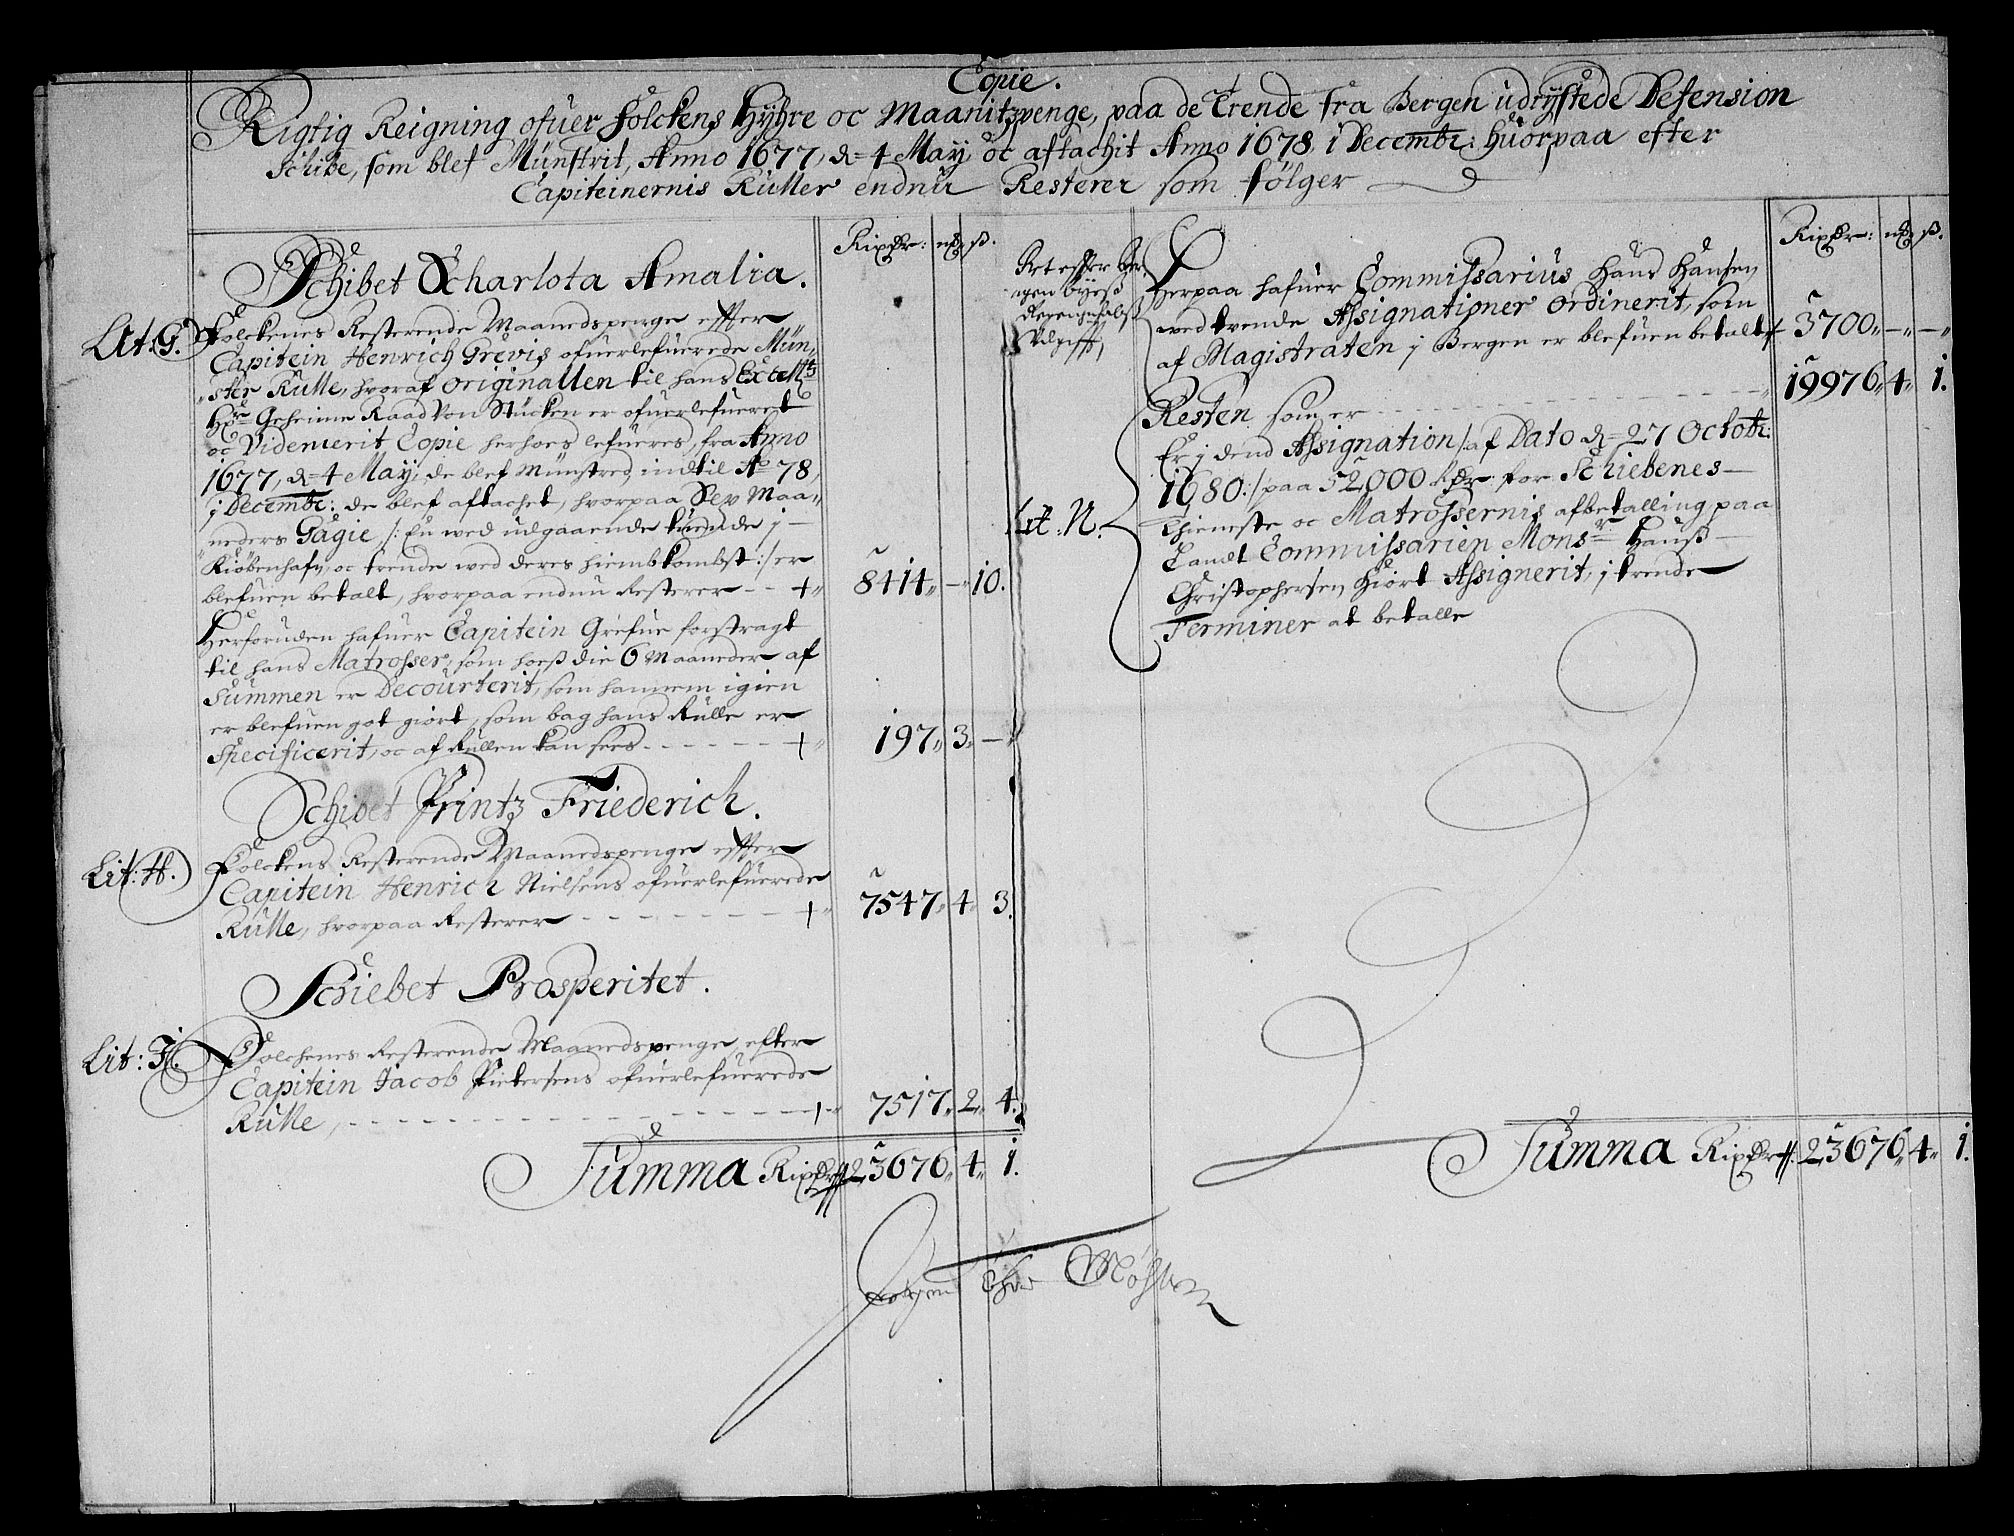 Copie.
Rigtig Reigning ofuer folckens Hyhre oc Maanitzpenge, paa de Trende fra Bergen udrystede Defension
Schibe, som blef Münstrit, Anno 1677, d= 4 May, oc aftachit Anno 1678 i Decembr: huorpaa efter
Capiteinernis Ruller endnu Resterer som følger
Rixdr: mk. ß.
Schibet Scharlota Amalia.
Lit: G. Folckenes Resterende Maanedspenge effter
Capitein Henrich Grevis ofuerlefuerede Mün-
ster Rulle, hvoraf originallen til hans Excellts
Hr Geheime Raad Von Stücken er ofuerlefueret
oc Videmerit Copie herhoes lefueres, fra Anno
1677, d= 4 May, de blef münstred, indtil Ao 78,
i Decembr: de blef aftachet, hvorpaa Sex Maa-
neders Gagie /: En ved udgaaende i
Kiöbenhafn, oc trende ved deres hiembkombst :/ er
blefuen betalt, hvorpaa endnu Resterer - - + 8414 - 10.
Herforuden hafuer Capitein Grefue forstragt
til hans Matrosser, som hoeß die 6 Maaneder af
Summen er Decourterit, som hannem igien
er blefuen got giört, som bag hans Rulle er
Specificerit, oc af Rullen kan sees - - - - + 197 3 -
Schibet Printz Friederich.
Lit: H. Folckens Resterende Maanedspenge effter
Capitein Henrich Nielsens ofuerlefuerede
Rulle, hvorpaa Resterer - - - - + 7547 4 3.
Schiebet Prosperitet.
Lit: J. Folchenes Resterende Maanedspenge efter
Capitein Jacob Pietersens ofuerlefuerede
Rulle, - - - - + 7517 2 4.
Summa Rixdr 23676 4 1.
Rixdr: mk. ß.
Art effter Ber-
gen byeß
Regenschabs
Udgifft
Herpaa hafuer Commissarius Hans Hansen
ved tvende Assignationer ordinerit, som
af Magistraten i Bergen er blefuen betalt + 3700 - -
Resten som er - - - - 19976 4 1.
Lit. N.
Er i dend Assignation /: af Dato d= 27 Octobr:
1680 :/ paa 52000 Rdr for Schiebenes
Thieneste oc Matrossernis afbetalling paa
Landt Commissarien Monsr Hanß
Christophersen Hiort Assignerit, i trende
Terminer at betalle
Summa Rixdr 23676 4 1.